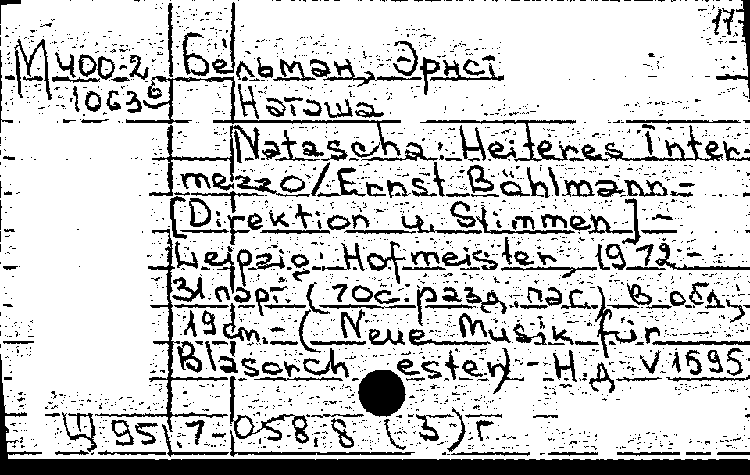 117
М 400-2 Бельман, Эрнст
1063б Наташа
Natascha: Heiteres Inter-
mezzo/Ernst Bählmann.-
[Direktion u. Stimmen].-
Leipzig: Hofmeister, 1972.-
31 парт. (70с. разд. паг.) в обл.;
19 cm.- (Neue Musik für
Blasorchester).- Н.д. V 1595
Ц 95/.7-058,8 (3) г